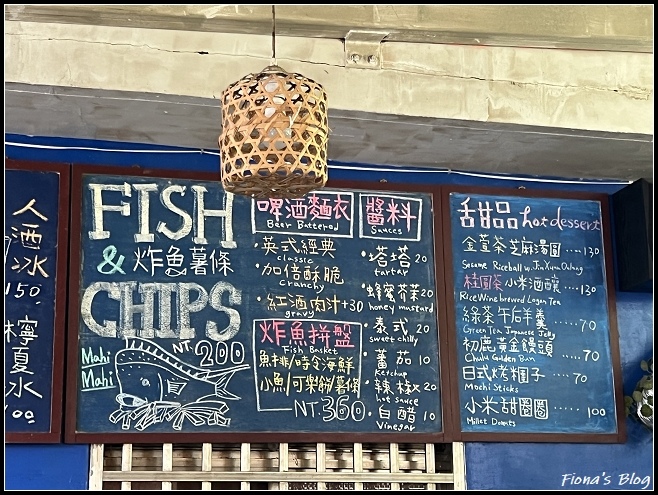 人酒冰
150.
檸夏水
100
FISH
& 炸魚薯條
CHIPS
NT. 200
Mahi
Mahi
啤酒麵衣
Beer Battered
·英式經典
classic
·加倍酥脆
Crunchy
·紅酒肉汁+30
gravy
炸魚拼盤
Fish Basket
魚排/時令海鮮
小魚/可樂餅/薯條
NT.360
醬料
Sauces
·塔塔 20
tartar
·蜂蜜芥茉 20
honey mustard
·泰式 20
sweet chilly
·蕃茄 10
Ketchup
·辣椒 20
hot sauce
·白醋 10
Vinegar
甜品 hot dessert
金萱茶芝麻湯圓 ....130
Sesame Riceball w. JinXuan Oolong
桂圓茶小米酒釀 ....130
Rice Wine brewed Logan Tea
綠茶午后羊羹 ..... 70
Green Tea Japanese Jelly
初鹿黃金饅頭 ...... 70
Chulu Golden Bun
日式烤糰子 ..... 70
Mochi Sticks
小米甜圈圈 ..... 100
Millet Donuts
Fiona's Blog